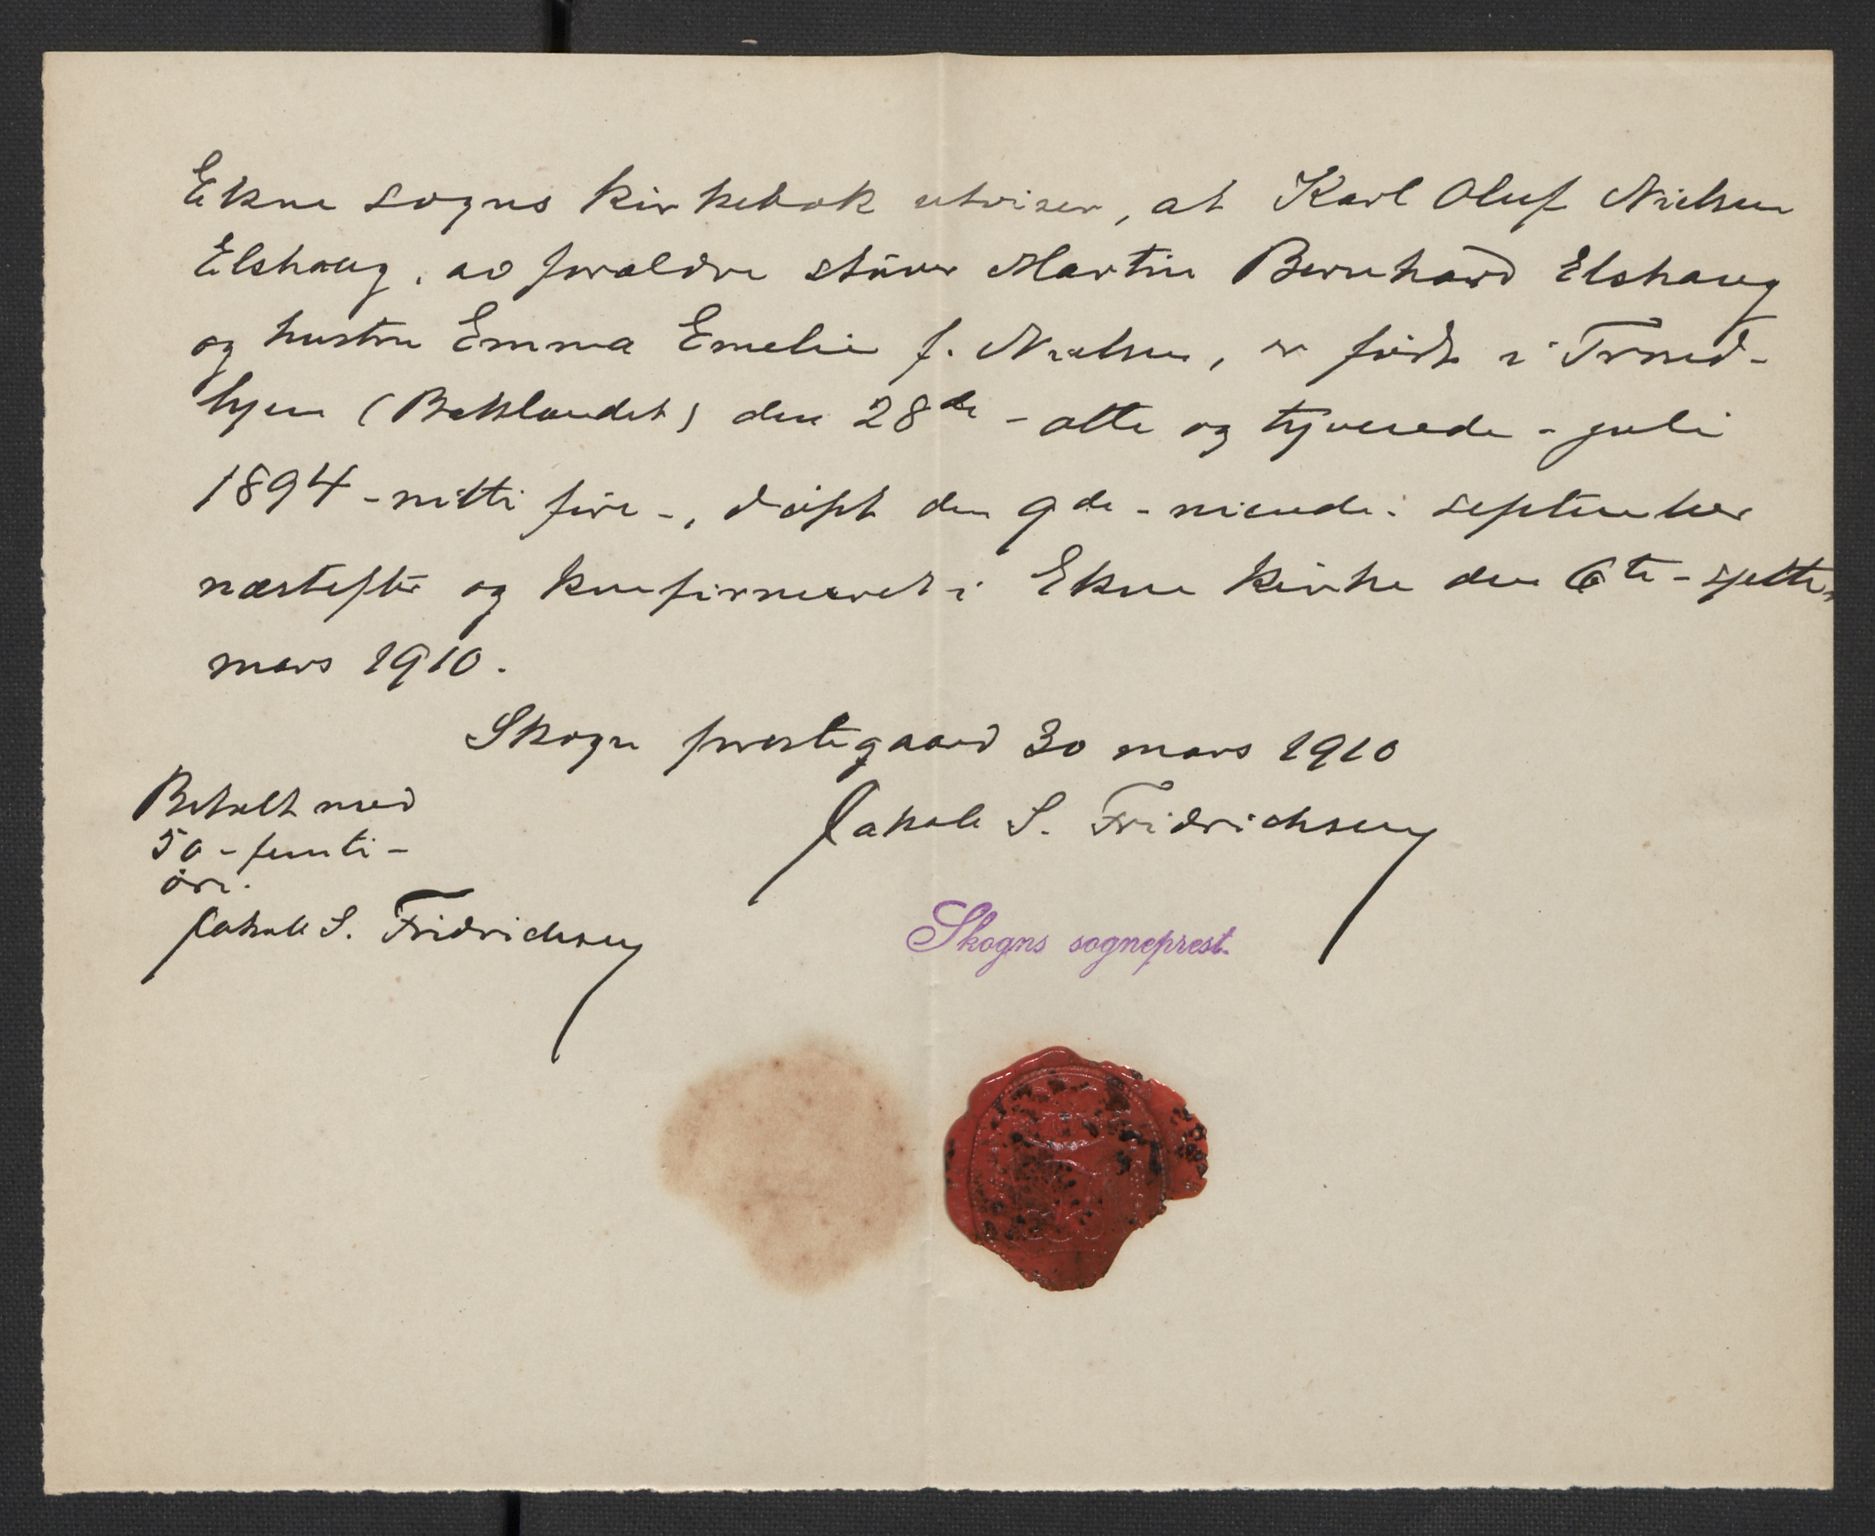 Ekne sogns kirkebok utviser, at Karl Oluf Nielsen
Elshaug, av forældre stuver Martin Bernhard Elshaug
og hustru Emma Emelie f. Nielsen, er født i Trond-
hjem (Baklandet) den 28de - otte og tyvende - juli
1894 - nitti fire -, døpt den 9de - niende - september
næstefter og konfirmeret i Ekne kirke den 6te - sjette -
mars 1910.
Skogn prestegaard 30 mars 1910
Jakob S. Fridrichsen
Skogns sogneprest.
Betalt med
50 - femti -
øre.
Jakob S. Fridrichsen